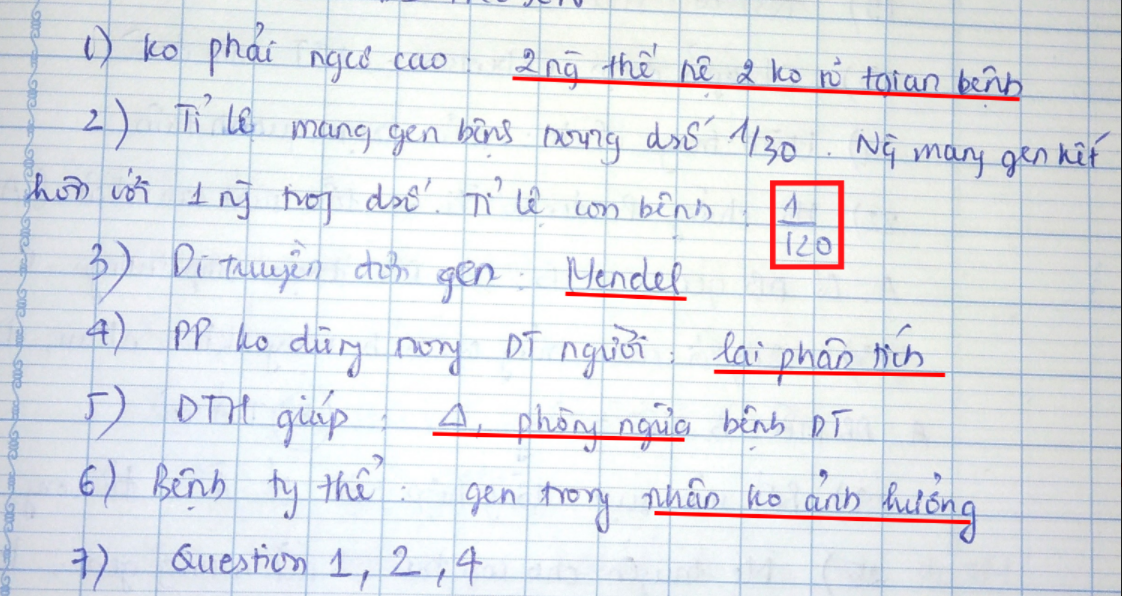 1) ko phải ngcơ cao : 2 ng thế hệ 2 ko rõ tgian bệnh
2) Tỉ lệ mang gen bệnh trong dsố 1/30 . Ng mang gen kết
hôn với 1 ng trong dsố. Tỉ lệ con bệnh : 1/120
3) Di truyền đơn gen : Mendel
4) PP ko dùng trong DT người : lai phân tích
5) DTH giúp : Δ, phòng ngừa bệnh DT
6) Bệnh ty thể : gen trong nhân ko ảnh hưởng
7) Question 1, 2, 4